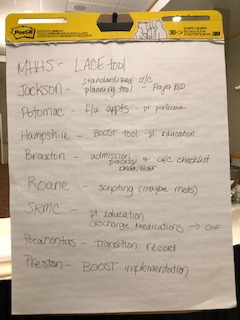 Post-it
30
3M
MHHS - LACE tool
Jackson - standardized d/c planning tool - Project RED
Potomac - f/u appts - pt preference
Hampshire - BOOST tool - pt education
Braxton - admission process & d/c checklist
binder/folder
Roane - scripting (maybe meds)
SRMC - pt education
discharge medications → CHF
Pocahontas - transition record
Preston - BOOST implementation